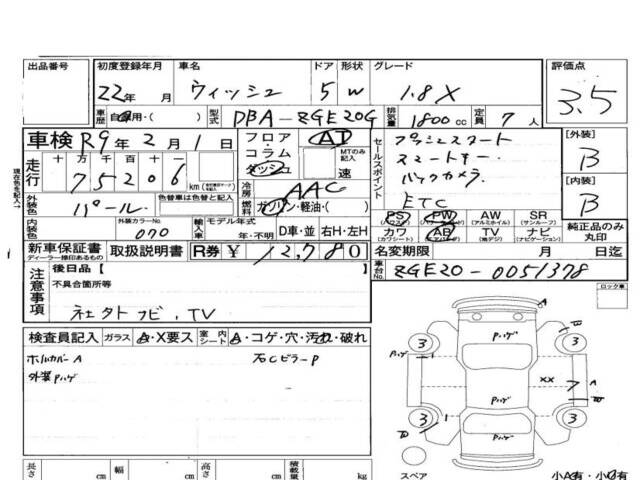 出品番号 初度登録年月 車名 ドア 形状 グレード 評価点
22年 月 ウィッシュ 5 W 1.8X 3.5
車歴 自家用・( ) 型式 DBA-ZGE20G 排気量 1800cc 定員 7人
車検 R9年2月1日 フロア・コラム・ダッシュ AT MTのみ記入 速
セールスポイント プッシュスタート
スマートキー
バックカメラ
ETC
[外装] B
[内装] B
現在色を記入
走行 十万千百十 75206 km
冷房 AAC
燃料 ガソリン・軽油・( )
外装色 パール 色替車は色替と記入
内装色 外装カラーNo. 070 輸入車 モデル年式 年・不明 D車・並 右H・左H
PS (パワステ) PW AW (アルミホイル) SR (サンルーフ) 純正品のみ丸印
カワ (カワシート) AB TV (地デジ) ナビ (ナビゲーション)
新車保証書 ディーラー捺印あるもの 取扱説明書 R券 ¥ 12,780 名変期限 月 日迄
車台No. ZGE20-0051378
注意事項 後日品 [ ]
不具合箇所等
社外ナビ、TV
ロック車
検査員記入 ガラス A・X要ス 室内シート A・コゲ・穴・汚れ・破れ
ホイルカバーA 右CピラーP
外装Pハゲ
A
B
ハゲ
3 3
Pハゲ
XX 7 A
Pハゲ
3 3
Pハゲ
長さ cm 幅 cm 高さ cm 積載量 kg
スペア 小A有・小